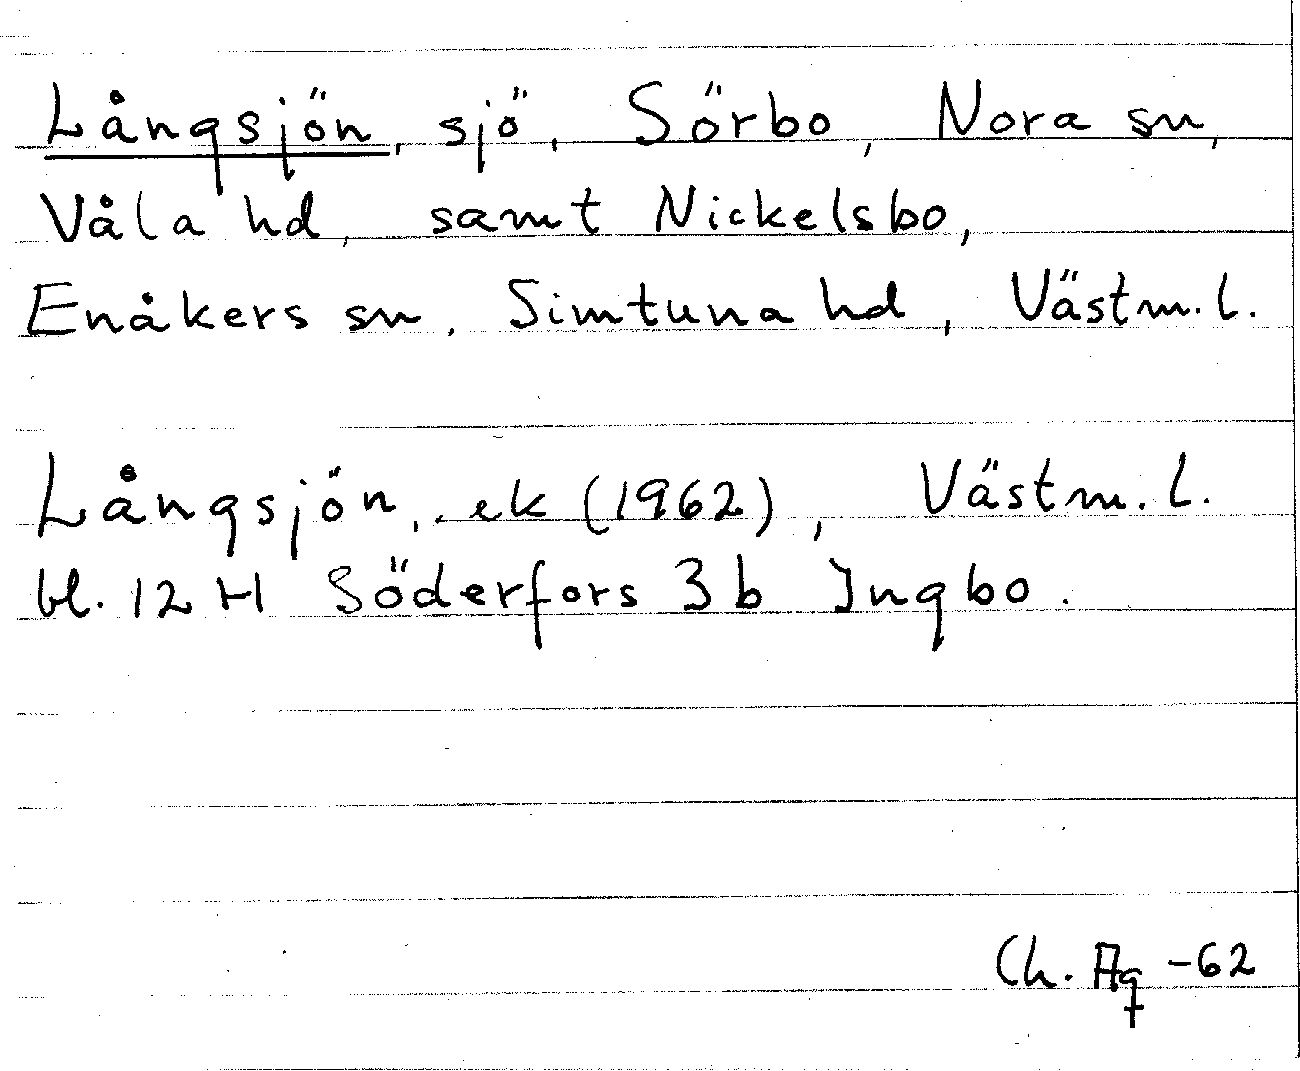 Långsjön, sjö, Sörbo, Nora sn,
Våla hd, samt Nickelsbo,
Enåkers sn, Simtuna hd, Västm. l.
Långsjön, ek (1962), Västm. l.
bl. 12 H Söderfors 3 b Ingbo.
Ch. Ag -62